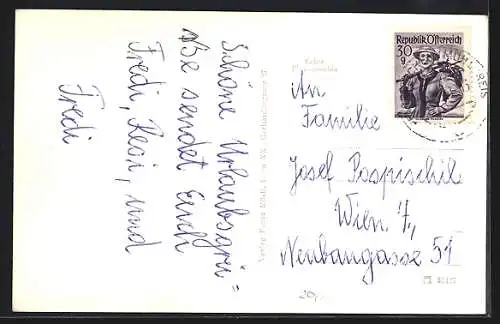 Schöne Urlaubsgrü=
ße sendet Euch
Fredi, Resi, und
Fredi
Echte
Verlag Franz Mörtl, Wien XX.
Republik Österreich
30
g
An
Familie
Josef Pospischil
Wien 7,
Neubaugasse 51
20,-